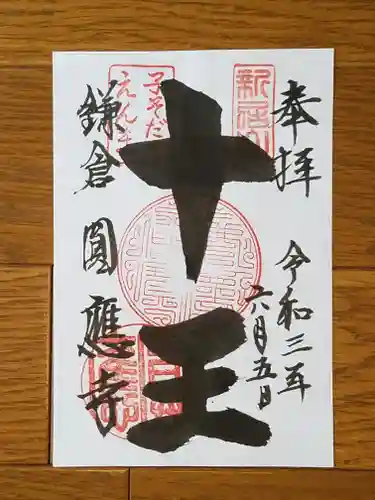 奉拝
令和三年
六月五日
十王
子そだ
えんま
鎌倉圓應寺